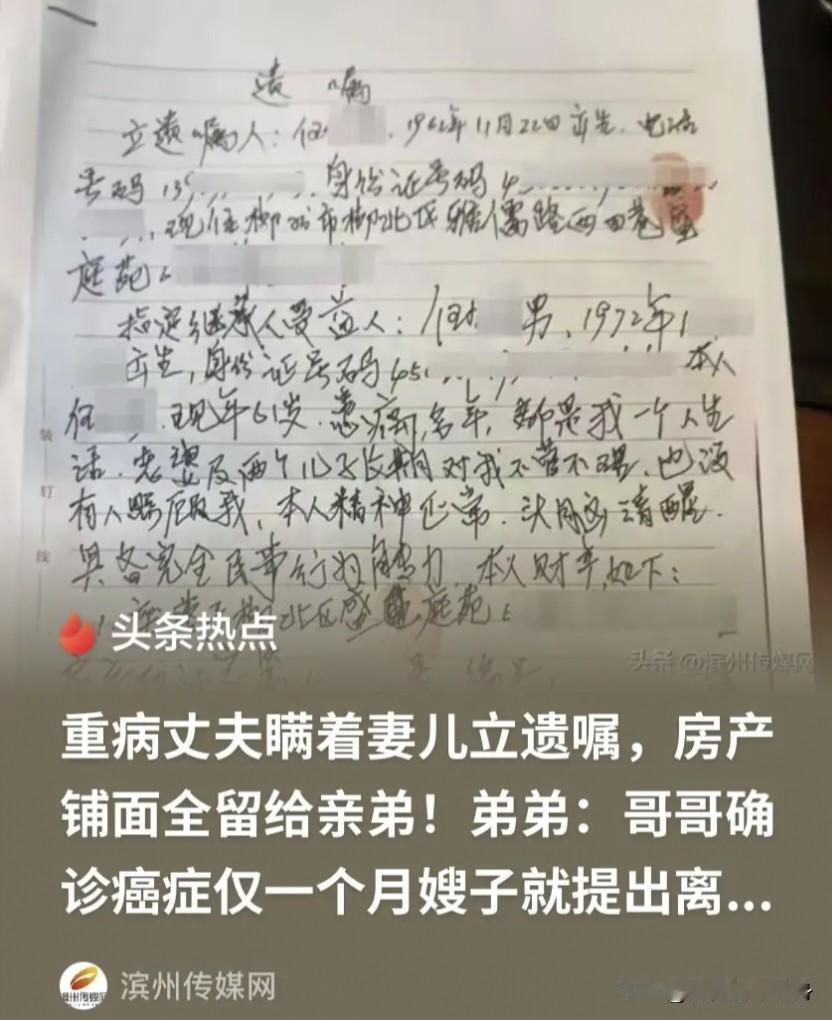 遗嘱
立遗嘱人：任 ，1962年11月22日出生，电话
号码 139 ，身份证号码4
，现住柳州市柳北区雅儒路西四巷盛
庭苑
指定继承人受益人：任 男，1972年1
出生，身份证号码45 本人
任 ，现年61岁，患病多年，都是我一个人生
活，老婆及两个儿子长期对我不管不理，也没
有人照顾我，本人精神正常，头脑清醒，
具备完全民事行为能力，本人财产如下：
柳北区盛庭苑
装
订
线
头条热点
头条 @滨州传媒网
重病丈夫瞒着妻儿立遗嘱，房产
铺面全留给亲弟！弟弟：哥哥确
诊癌症仅一个月嫂子就提出离...
滨州传媒网